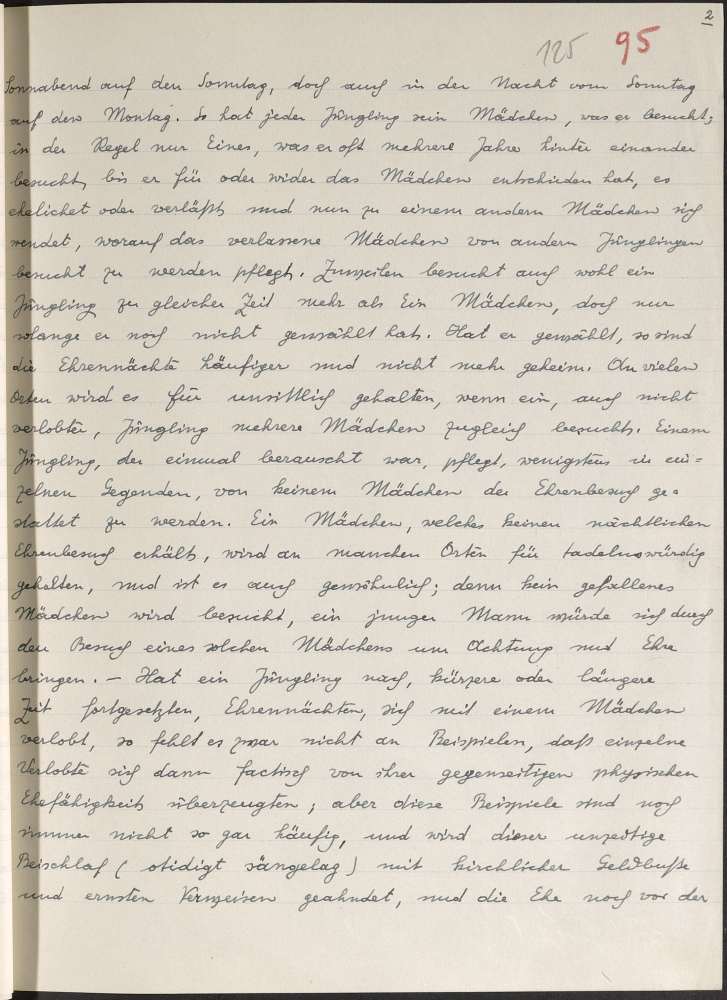 2
125 95
Sonnabend auf den Sonntag, doch auch in der Nacht vom Sonntag
auf den Montag. So hat jeder Jüngling sein Mädchen, was er besucht;
in der Regel nur Eines, was er oft mehrere Jahre hinter einander
besucht, bis er für oder wider das Mädchen entschieden hat, es
ehelichet oder verläßt und nun zu einem andern Mädchen sich
wendet, worauf das verlassene Mädchen von andern Jünglingen
besucht zu werden pflegt. Zuweilen besucht auch wohl ein
Jüngling zu gleicher Zeit mehr als Ein Mädchen, doch nur
solange er noch nicht gewählt hat. Hat er gewählt, so sind
die Ehrennächte häufiger und nicht mehr geheim. An vielen
Orten wird es für unsittlich gehalten, wenn ein, auch nicht
verlobter, Jüngling mehrere Mädchen zugleich besucht. Einem
Jüngling, der einmal berauscht war, pflegt, wenigstens in ein=
zelnen Gegenden, von keinem Mädchen der Ehrenbesuch ge=
stattet zu werden. Ein Mädchen, welches keinen nächtlichen
Ehrenbesuch erhält, wird an manchen Orten für tadelnswürdig
gehalten, und ist es auch gewöhnlich; denn kein gefallenes
Mädchen wird besucht, ein junger Mann würde sich durch
den Besuch eines solchen Mädchens um Achtung und Ehre
bringen. – Hat ein Jüngling nach, kürzere oder längere
Zeit fortgesetzten, Ehrennächten, sich mit einem Mädchen
verlobt, so fehlt es zwar nicht an Beispielen, daß einzelne
Verlobte sich dann factisch von ihrer gegenseitigen physischen
Ehefähigkeit überzeugten; aber diese Beispiele sind noch
immer nicht so gar häufig, und wird dieser unzeitige
Beischlaf (otidigt sängelag) mit kirchlicher Geldbuße
und ernsten Verweisen geahndet, und die Ehe noch vor der